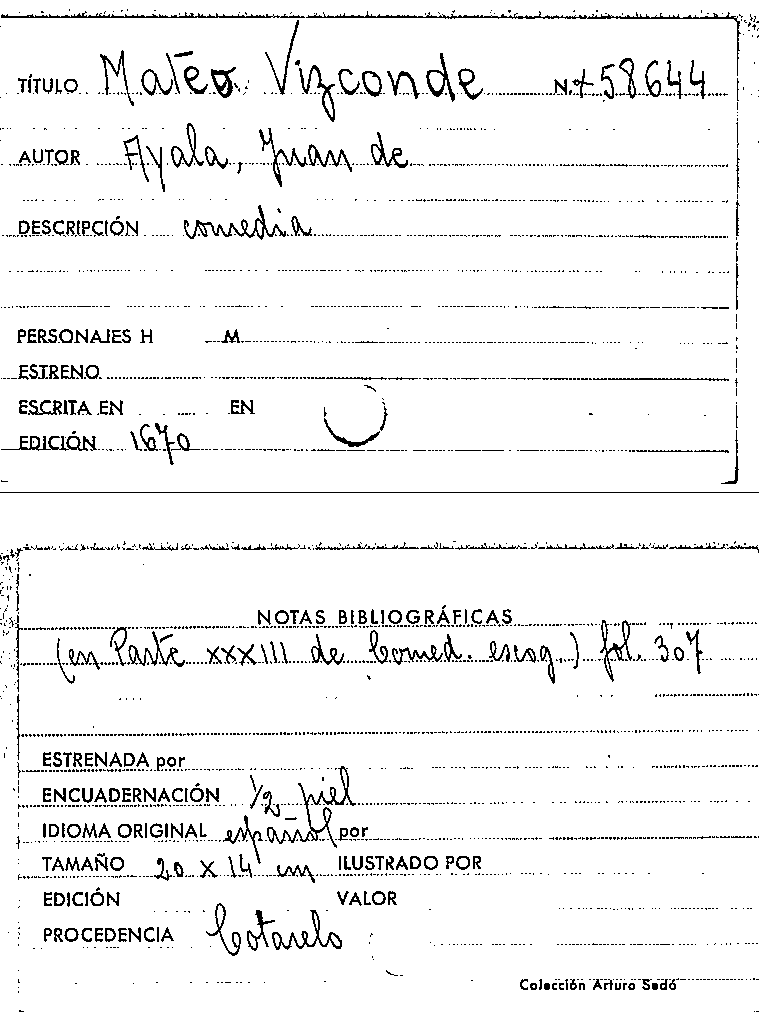 TÍTULO Mateo Vizconde N.º +58644
AUTOR Ayala, Juan de
DESCRIPCIÓN comedia
PERSONAJES H M
ESTRENO
ESCRITA EN EN
EDICIÓN 1670
NOTAS BIBLIOGRÁFICAS
(en Parte XXXIII de Comed. escog.) fol. 307
ESTRENADA por
ENCUADERNACIÓN 1/2 piel
IDIOMA ORIGINAL español por
TAMAÑO 20 x 14 cm ILUSTRADO POR
EDICIÓN VALOR
PROCEDENCIA Cotarelo
Colección Arturo Sedó